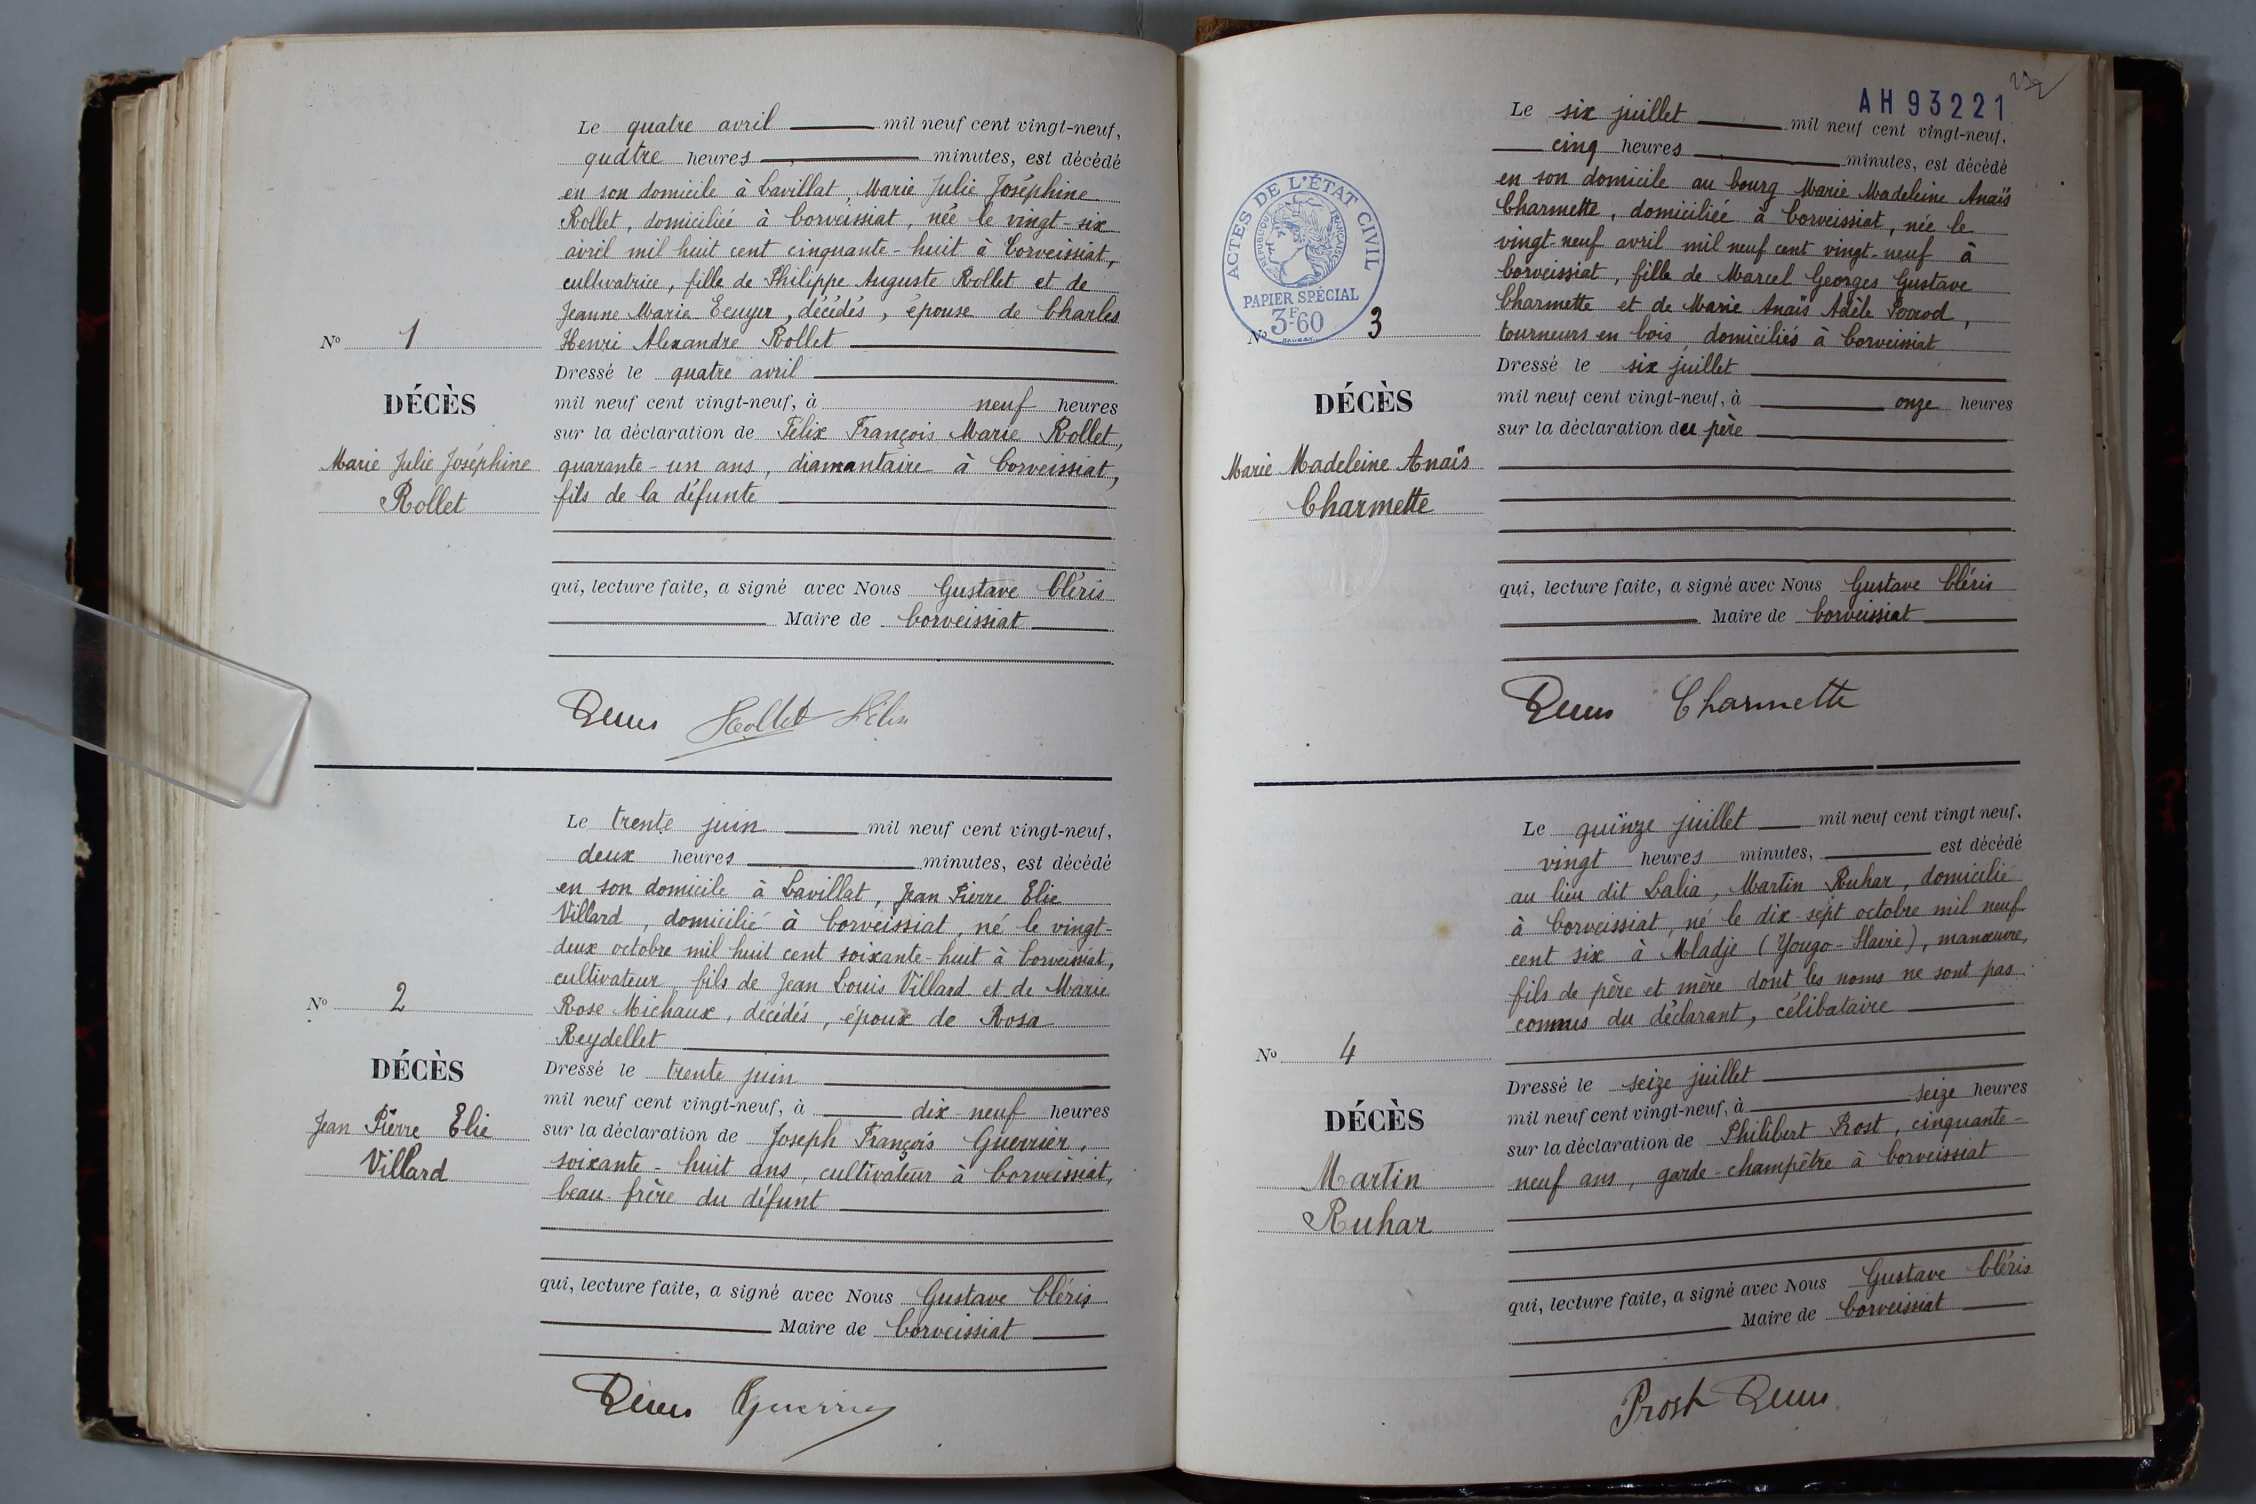 Le quatre avril mil neuf cent vingt-neuf,
quatre heures minutes, est décédé
en son domicile à Lavillat, Marie Julie Joséphine
Rollet, domiciliée à Corveissiat, née le vingt-six
avril mil huit cent cinquante-huit à Corveissiat,
cultivatrice, fille de Philippe Auguste Rollet et de
Jeanne Marie Ecuyer, décédés, épouse de Charles
Henri Alexandre Rollet
Nº 1
Dressé le quatre avril
DÉCÈS
mil neuf cent vingt-neuf, à neuf heures
sur la déclaration de Félix François Marie Rollet,
Marie Julie Joséphine
Rollet
quarante-un ans, diamantaire à Corveissiat,
fils de la défunte
qui, lecture faite, a signé avec Nous Gustave Cléris
Maire de Corveissiat
Rollet Félix
Le trente juin mil neuf cent vingt-neuf,
deux heures minutes, est décédé
en son domicile à Lavillat, Jean Pierre Elie
Villard, domicilié à Corveissiat, né le vingt-
deux octobre mil huit cent soixante-huit à Corveissiat,
cultivateur, fils de Jean Louis Villard et de Marie
Rose Michaux, décédés, époux de Rosa
Reydellet
Nº 2
Dressé le trente juin
DÉCÈS
mil neuf cent vingt-neuf, à dix-neuf heures
sur la déclaration de Joseph François Guerrier,
Jean Pierre Elie
Villard
soixante-huit ans, cultivateur à Corveissiat,
beau-frère du défunt
qui, lecture faite, a signé avec Nous Gustave Cléris
Maire de Corveissiat
Guerrier
AH 93221
Le six juillet mil neuf cent vingt-neuf,
cinq heures minutes, est décédé
en son domicile au bourg Marie Madeleine Anaïs
Charmette, domiciliée à Corveissiat, née le
vingt-neuf avril mil neuf cent vingt-neuf à
Corveissiat, fille de Marcel Georges Gustave
Charmette et de Marie Anaïs Adèle
tourneurs en bois domiciliés à Corveissiat
ACTES DE L'ÉTAT CIVIL
RÉPUBLIQUE FRANÇAISE
PAPIER SPÉCIAL
3F60
Nº 3
Dressé le six juillet
DÉCÈS
mil neuf cent vingt-neuf, à onze heures
sur la déclaration du père
Marie Madeleine Anaïs
Charmette
qui, lecture faite, a signé avec Nous Gustave Cléris
Maire de Corveissiat
Charmette
Le quinze juillet mil neuf cent vingt neuf,
vingt heures minutes, est décédé
au lieu dit Lalia, Martin Ruhar, domicilié
à Corveissiat, né le dix-sept octobre mil neuf
cent six à Mladje (Yougo-Slavie), manœuvre,
fils de père et mère dont les noms ne sont pas
connus du déclarant, célibataire
Nº 4
Dressé le seize juillet
DÉCÈS
mil neuf cent vingt-neuf, à seize heures
sur la déclaration de Philibert Prost, cinquante-
Martin
Ruhar
neuf ans, garde-champêtre à Corveissiat
qui, lecture faite, a signé avec Nous Gustave Cléris
Maire de Corveissiat
Prost